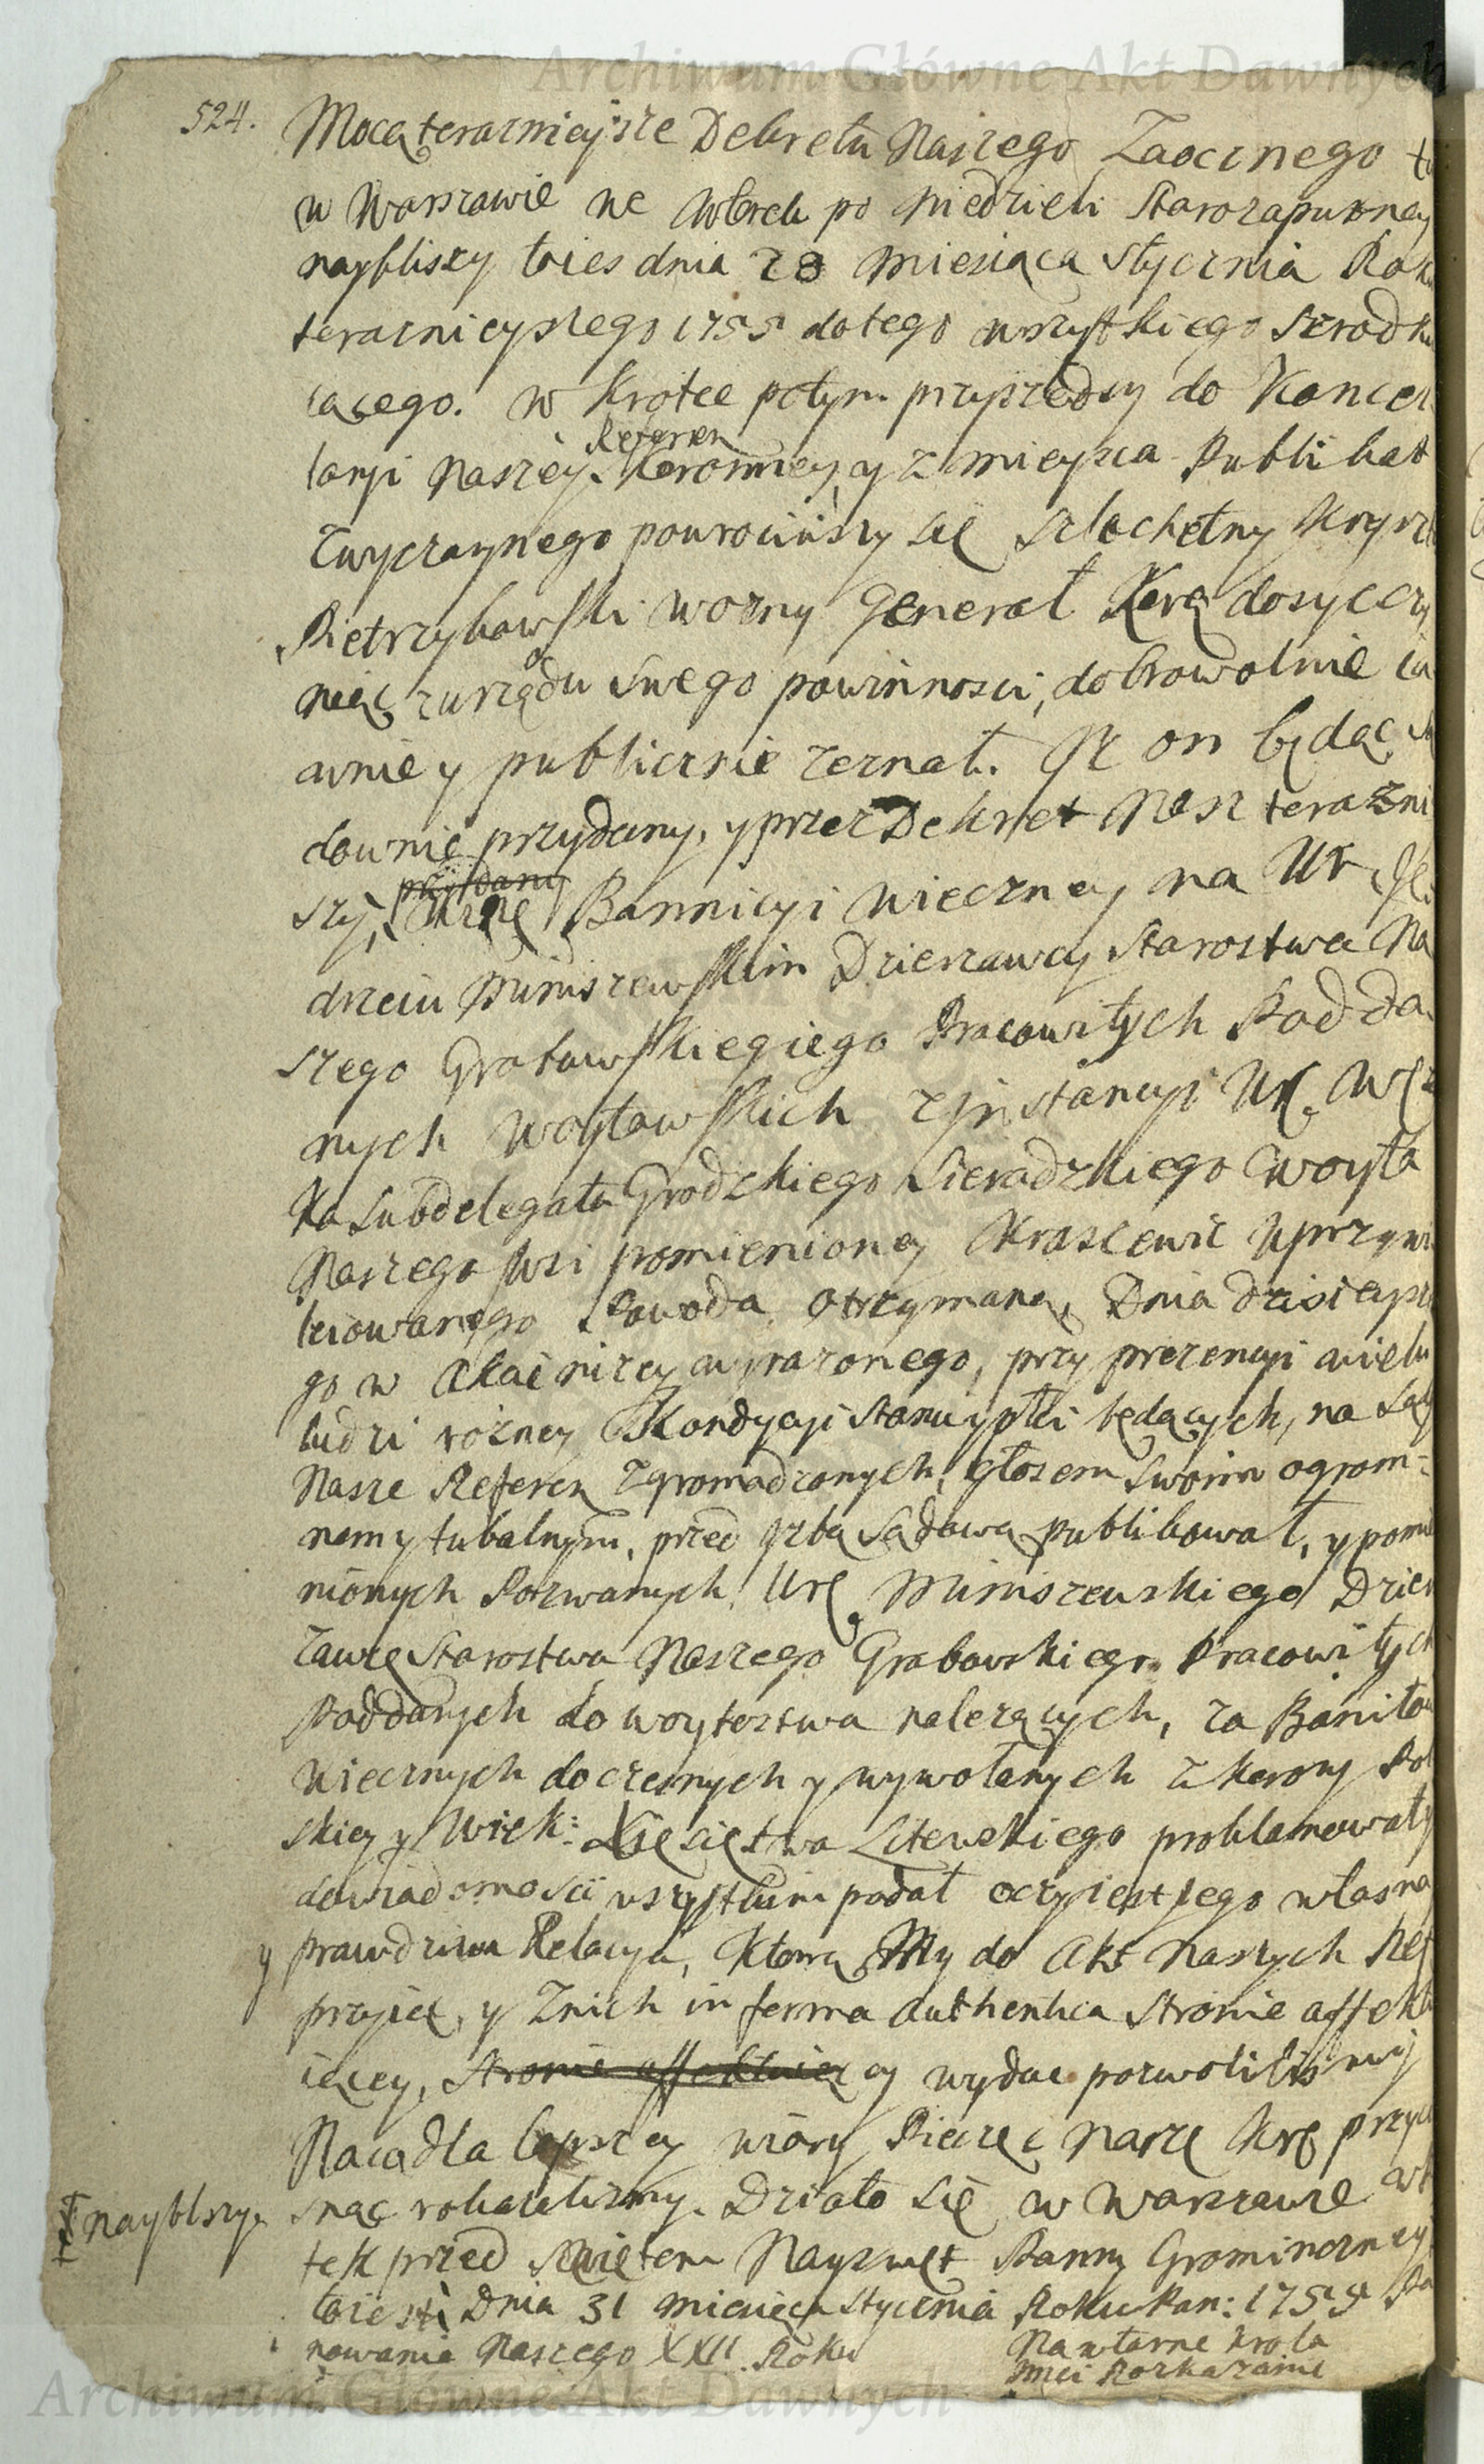 Archiwum Główne Akt Dawnych
524.
Mocą teraznieysze Dekretu Naszego Zaocznego tu
w Warszawie we wtorek po Niedzieli Starozapustney
nayblizszy toies dnia 28 Miesiąca Stycznia Roku
teraznieyszego 1755 do tego wszystkiego srodku
iącego. W krotce potym przyszedszy do Kancel
laryi Naszey Referen Koronney, y z mieysca Publikat
zwyczaynego powrociwszy się Szlachetny Krysz
Pietrzykowski wozny Generał Krą dosyc czy
niąc z urzędu swego powinnosci, dobrowolnie ia
wnie y publicznie zeznał. Iz on będąc
downie przydany, y przez Dekret Nasz terazni
szy, Bannicyi wieczney na Ur. Ję
drzeiu Miniszewskim Dzierzawcy Starostwa Na
szego Grabowskiegiego Pracowitych Podda
nych Woytowskich z Instancyi Ur.
ka Subdelegata Grodzkiego Sieradzkiego Woyta
Naszego wsi pomienioney Kraszewic Uprzywi
leiowanego Powoda otrzymaną, Dnia dzisieysze
go w Akcie nizey wyrazonego, przy prezencyi wielu
ludzi rózney Kondycyi Stanu y płci będących, na Sądy
Nasze Referen zgromadzonych, głosem swoim ogrom=
nemy tubalnym, przed Izbą Sądową publikował, y pomie
nionych Pozwanych Ur. Miniszewskiego Dzier
zawcę Starostwa Naszego Grabowskiego Pracowitych
Poddanych do woytostwa nalezących, za Banitow
Wiecznych doczesnych y wywołanych z Korony Pol
skiey y Wielk: Xięsięstwa Litewskiego proklamował y
do wiadomości wszystkim podał oczym iest jego własna
y prawdziwa Relacya, Którą My do Akt Naszych Ref
przyięc, y z nich in forma authentica stronie affektu
iącey, stronie affektuiącey wydac pozwolilismy
Na co dla lepszey wiary Pieczęc Nasze Krę przyci
snąc roskazalismy. Działo się w Warszawie w Pią
Ŧ nayblszy
tek przed Swiętem Nayswięt Panny Gromniczney
toiest Dnia 31 Miesiąca Stycznia Roku Pan: 1755 Pa
nowania Naszego XXII. Roku
Na własne Krola
Jmci Rozkazanie
Archiwum Główne Akt Dawnych